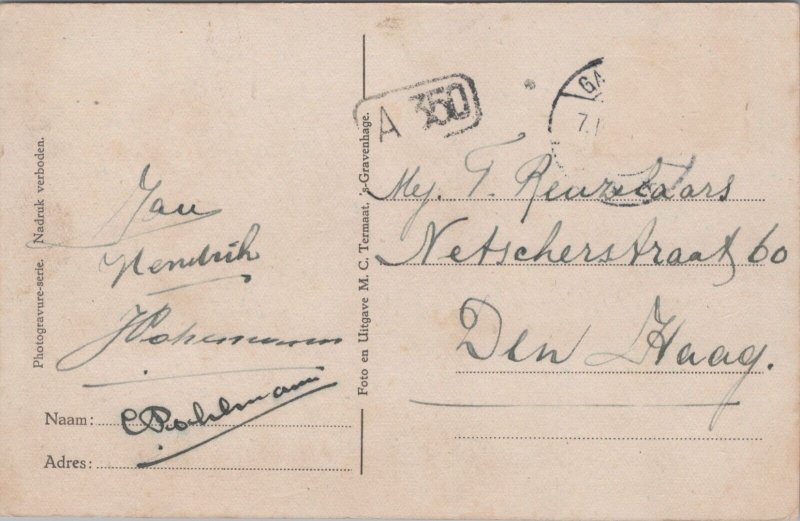 Photogravure-serie. Nadruk verboden.
Jan
Hendrik
Pohlmann
Naam: C Pohlmann
Adres:
Foto en Uitgave M. C. Termaat, 's-Gravenhage.
A 350
GA
7.
Mej. T. Renzelaars
Netscherstraat 60
Den Haag.